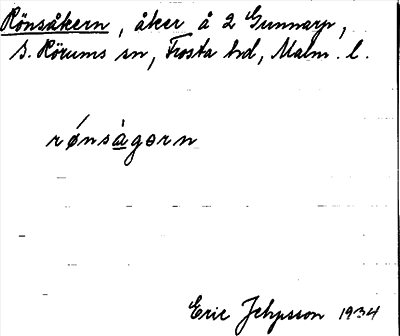 Rönsåkern, åker å 2 Gunnarp,
S. Rörums sn, Frosta hd, Malm. l.
rǿnsàgərn
Eric Jepsson 1934